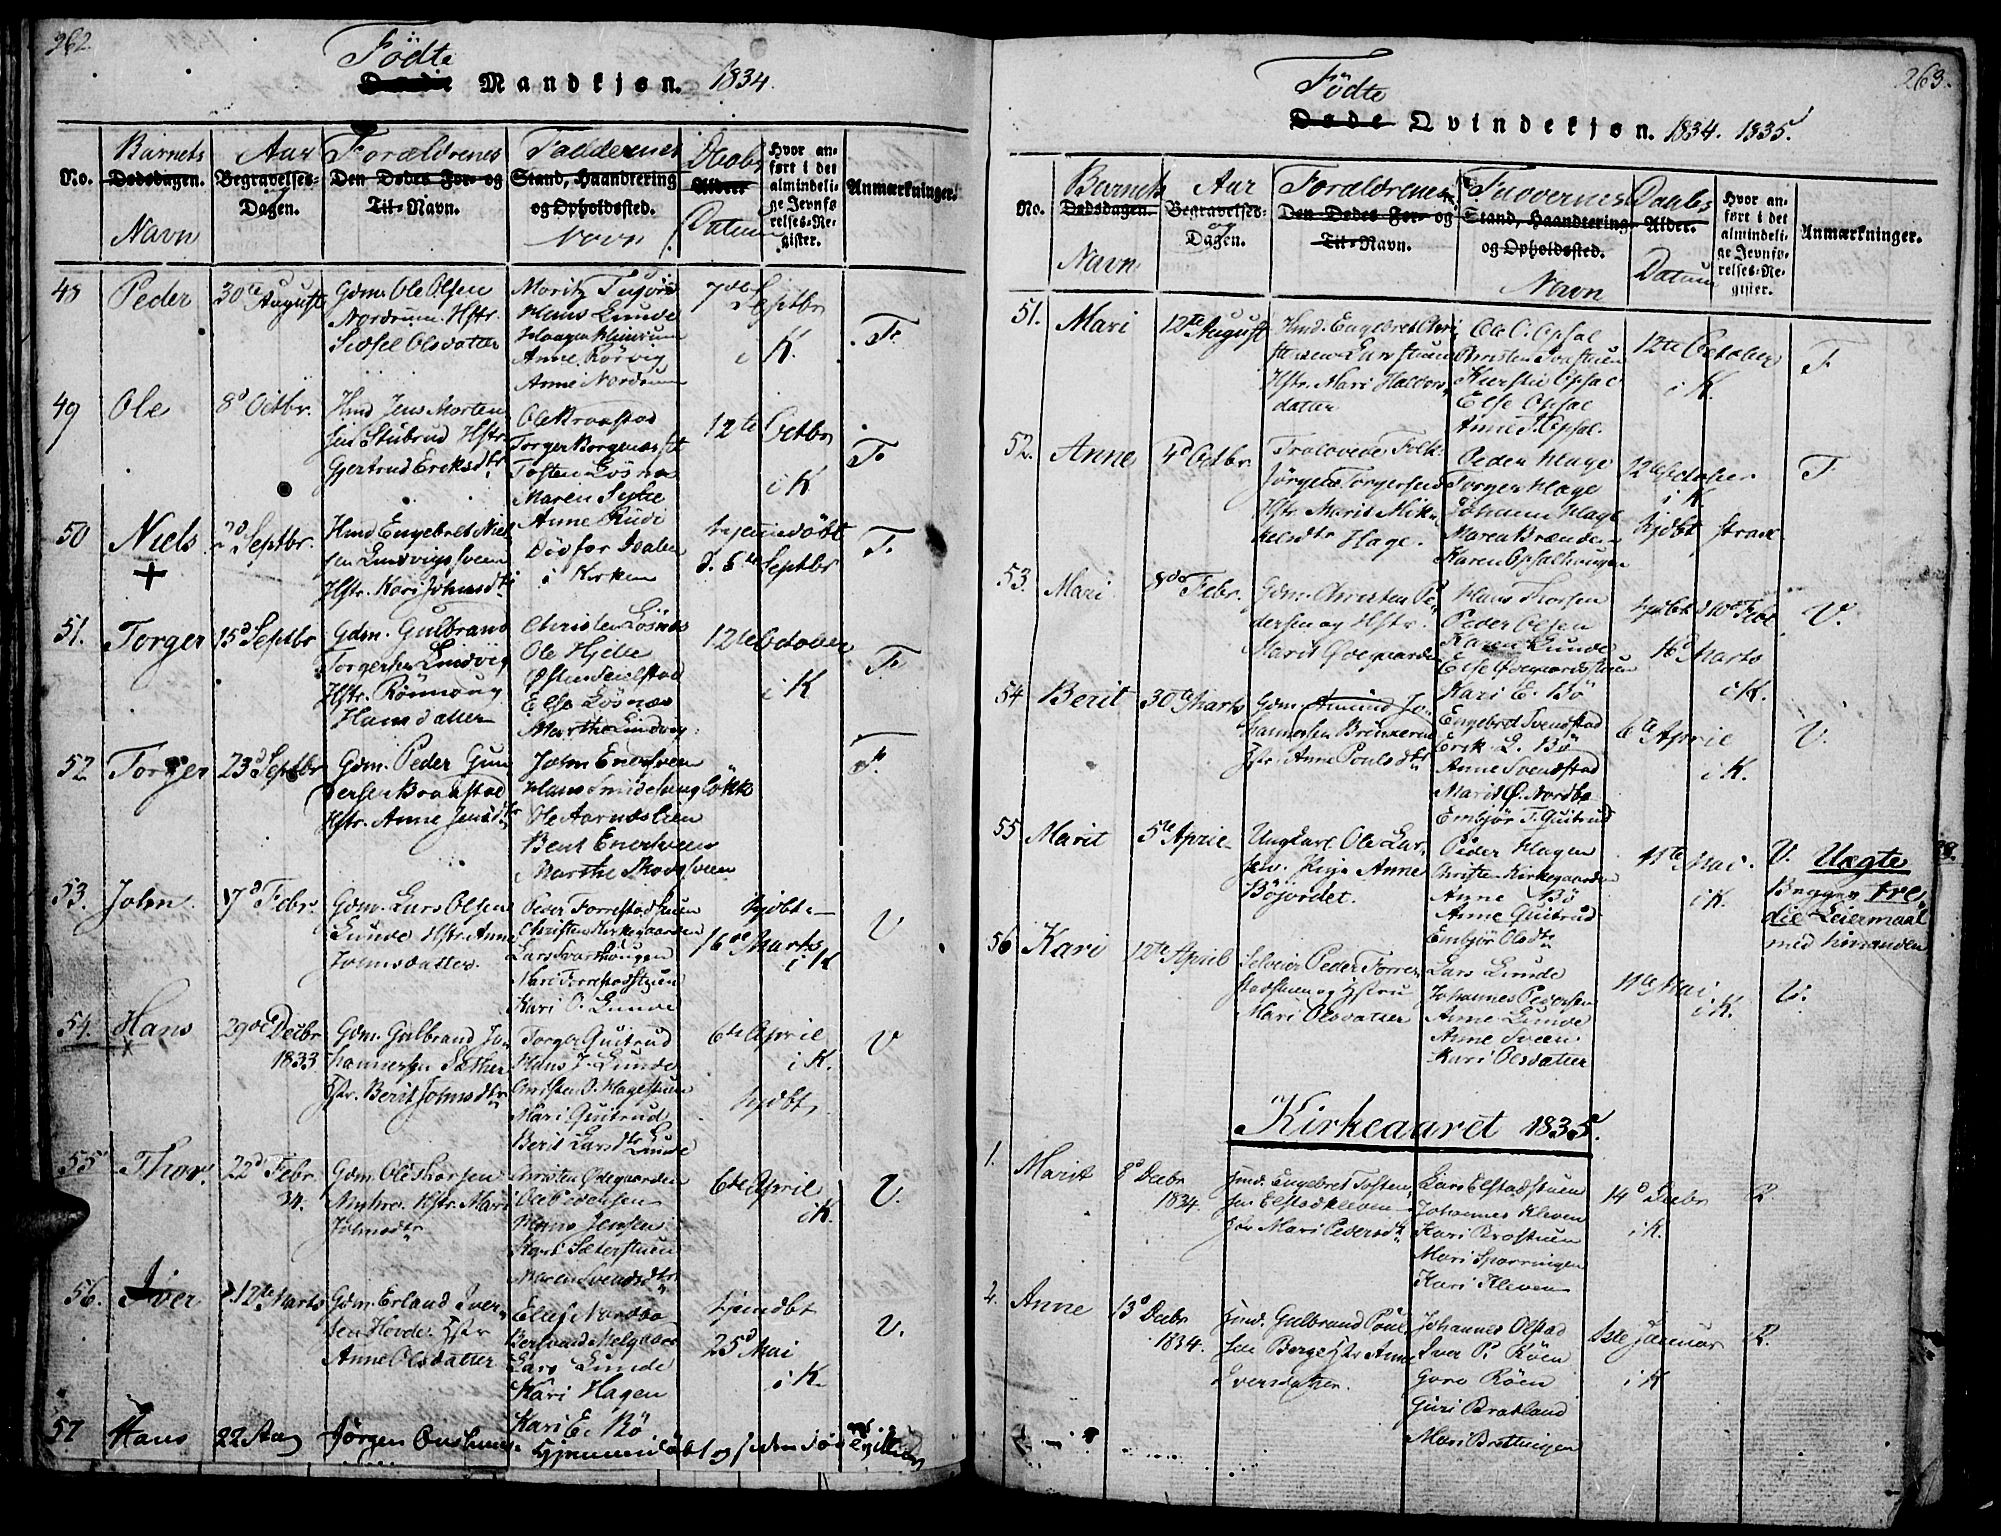 262.
Födte
Døde Mandkjøn. 1834.
No.
Barnets
Dødsdagen.
Navn
Aar
Begravelses-
Dagen.
Forældrenes
Den Dødes For- og
Til-Navn.
Faddernes
Stand, Haandtering
og Opholdssted.
Navn
Daabs
Alder
Datum
Hvor an-
ført i det
almindeli-
ge Jevnfø-
relses-Re-
gister.
Anmærkninger.
48 Peder 30te August
Gdm. Ole Olsen
Nordrum. Hstr.
Sidsel Olsdatter
Moritz
Hans Lunde
Anne Rörvig
Anne Nordrum
7de Septbr
i K.
F.
49 Ole 8d Octbr.
Hmd Jens Morten
sen Stubrud Hstr.
Gjertrud Eriksdtr
Ole Braastad
Torger
Tosten Lösna
Maren
Anne Rudi
12te Octbr
i K
F.
50 Niels 2d Septbr.
Hmd Engebret Niel
sen Lindvigssveen
Hstr. Kari Johnsdtr
Död for Daaben
i Kirken
hjemmedöbt
d. 5te Septbr
F.
51. Torger 15d Septbr
Gdm. Gulbrand
Torgersen Lindvig
Hstr. Rönnoug
Hansdatter
Christen Lösnæs
Ole Hjelle
Østen
Else Lösnæs
Marthe Lindvig
12te October
i K
F.
52 Torger 23d Septbr
Gdm. Peder Gun
dersen Braastad
Hstr. Anne Jensdtr
John Enersveen
Hans Smidehaug
Ole Aarneslien
Bent Enersveen
Marthe Skovsveen
F.
53. John 17d Febr.
Gdm. Lars Olsen
Lunde Hstr. Anne
Johnsdatter.
Peder Forrestadstuen
Christen Kirkegaarden
Lars Svarthaugen
Mari Forrestadstuen
Kari O. Lunde
hjdbt.
16de Marts
i K
V
54. Hans 29de Decbr
1833
Gdm. Gulbrand Jo-
hannessen Sæther
Hstr. Berit Johnsdtr
Torger Guitrud
Hans J. Lunde
Christen O. Hagestuen
Mari Guitrud
Berit Larsdtr Lunde
6te April
i K.
hjdbt.
V
55 Thor. 22d Febr.
34.
Gdm. Ole Thorsen
Hstr. Mari
Johnsdtr
Christen Ødegaarden
Ole Pedersen
Hans Jensen
Kari Sæterstuen
Maren Svendsdtr
6te April
i K.
V.
56. Iver 12te Marts
Gdm. Erland Iver-
sen Hovde. Hstr
Anne Olsdatter
Ellef Nordbö
Bersvend Melgaard
Lars Lunde
Kari Hagen
Kari E. Bö
hjemdbt
25d Mai
i K.
V.
57 Hans 22 Aug
Jörgen
Hjemmedöbt og siden död
263.
Födte
Døde Qvindekjøn. 1834. 1835.
No.
Barnets
Dødsdagen.
Navn
Aar
Begravelses-
og
Dagen.
Forældrenes
Den Dødes For- og
Til-Navn.
Faddernes
Stand, Haandtering
og Opholdssted.
Navn
Daabs
Alder.
Datum
Hvor an-
ført i det
almindeli-
ge Jevnfø-
relses-Re-
gister.
Anmærkninger.
51. Mari 12te August
Hmd. Engebret Chri
stensen
Hstr. Mari Halvors
datter
Ole C. Opsal
Kiersti Opsal
Else Opsal
Anne T. Opsal.
12te October
i K.
F
52. Anne 4d Octbr.
Trolovede Folk.
Jörgen Torgersen
Hstr. Marit Mik-
kelsdtr Hage.
Peder Hage
Torger Hage
Johanne Hage
Maren Brænden
Karen Opsalhaugen
12te October
i K
hjdbt strax
F
53. Mari 8de Febr.
Gdm. Christen Pe-
dersen og Hstr.
Marit Ödegaarden
Hans Thorsen
Peder Olsen
Karen Lunde
Else Ödegaardstuen
Kari E. Bö
hjdbt d 10de Febr
16 Marts
i K.
V.
54 Berit 30te Marts
Gdm. Amund Jo-
hannessen
Hstr. Anne Poulsdtr
Engebret Svendstad
Erik L. Bö
Anne Svendstad
Marit O. Nordbö
Embjör T. Guitrud
6te April
i K.
V.
55 Marit 5te April
Ungkarl Ole Lar-
sen. Pige Anne
Böjordet.
Peder Hagen
Christen Kirkegaarden
Anne Bö
Anne Guitrud
Embjör Olsdtr
11te Mai.
i K.
V. Uægte
Begges tre-
die Leiermaal
med hinanden
56 Kari 12te April
Selveier Peder Forre-
stadstuen og Hstru
Mari Olsdatter
Lars Lunde
Johannes Pedersen
Anne Lunde
Anne Sveen
Kari Olsdatter
11te Mai.
i K.
V.
Kirkeaaret 1835.
1. Marit 8d Decbr
1834.
Hmd. Engebret Tosten-
sen Elstadkleven
Hstr Mari Pedersdtr
Lars Elstadstuen
Johannes Kleven
Kari Brostuen
Mari Sparringen
Kari Kleven
14d Decbr
i K.
R
2. Anne 13d Decbr
1834.
Hmd. Gulbrand Poul-
sen Berge Hstr Anne
Iversdatter.
Johannes Olstad
Iver P. Röen
Goro Röen
Guri Bratland
Mari Brettingen
1ste Januar
i K
R.